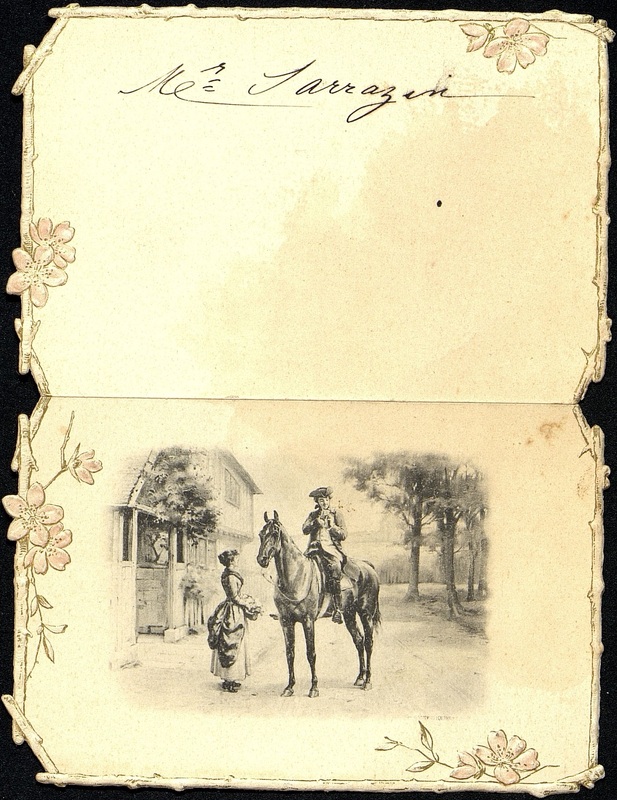 Mr Sarrazin